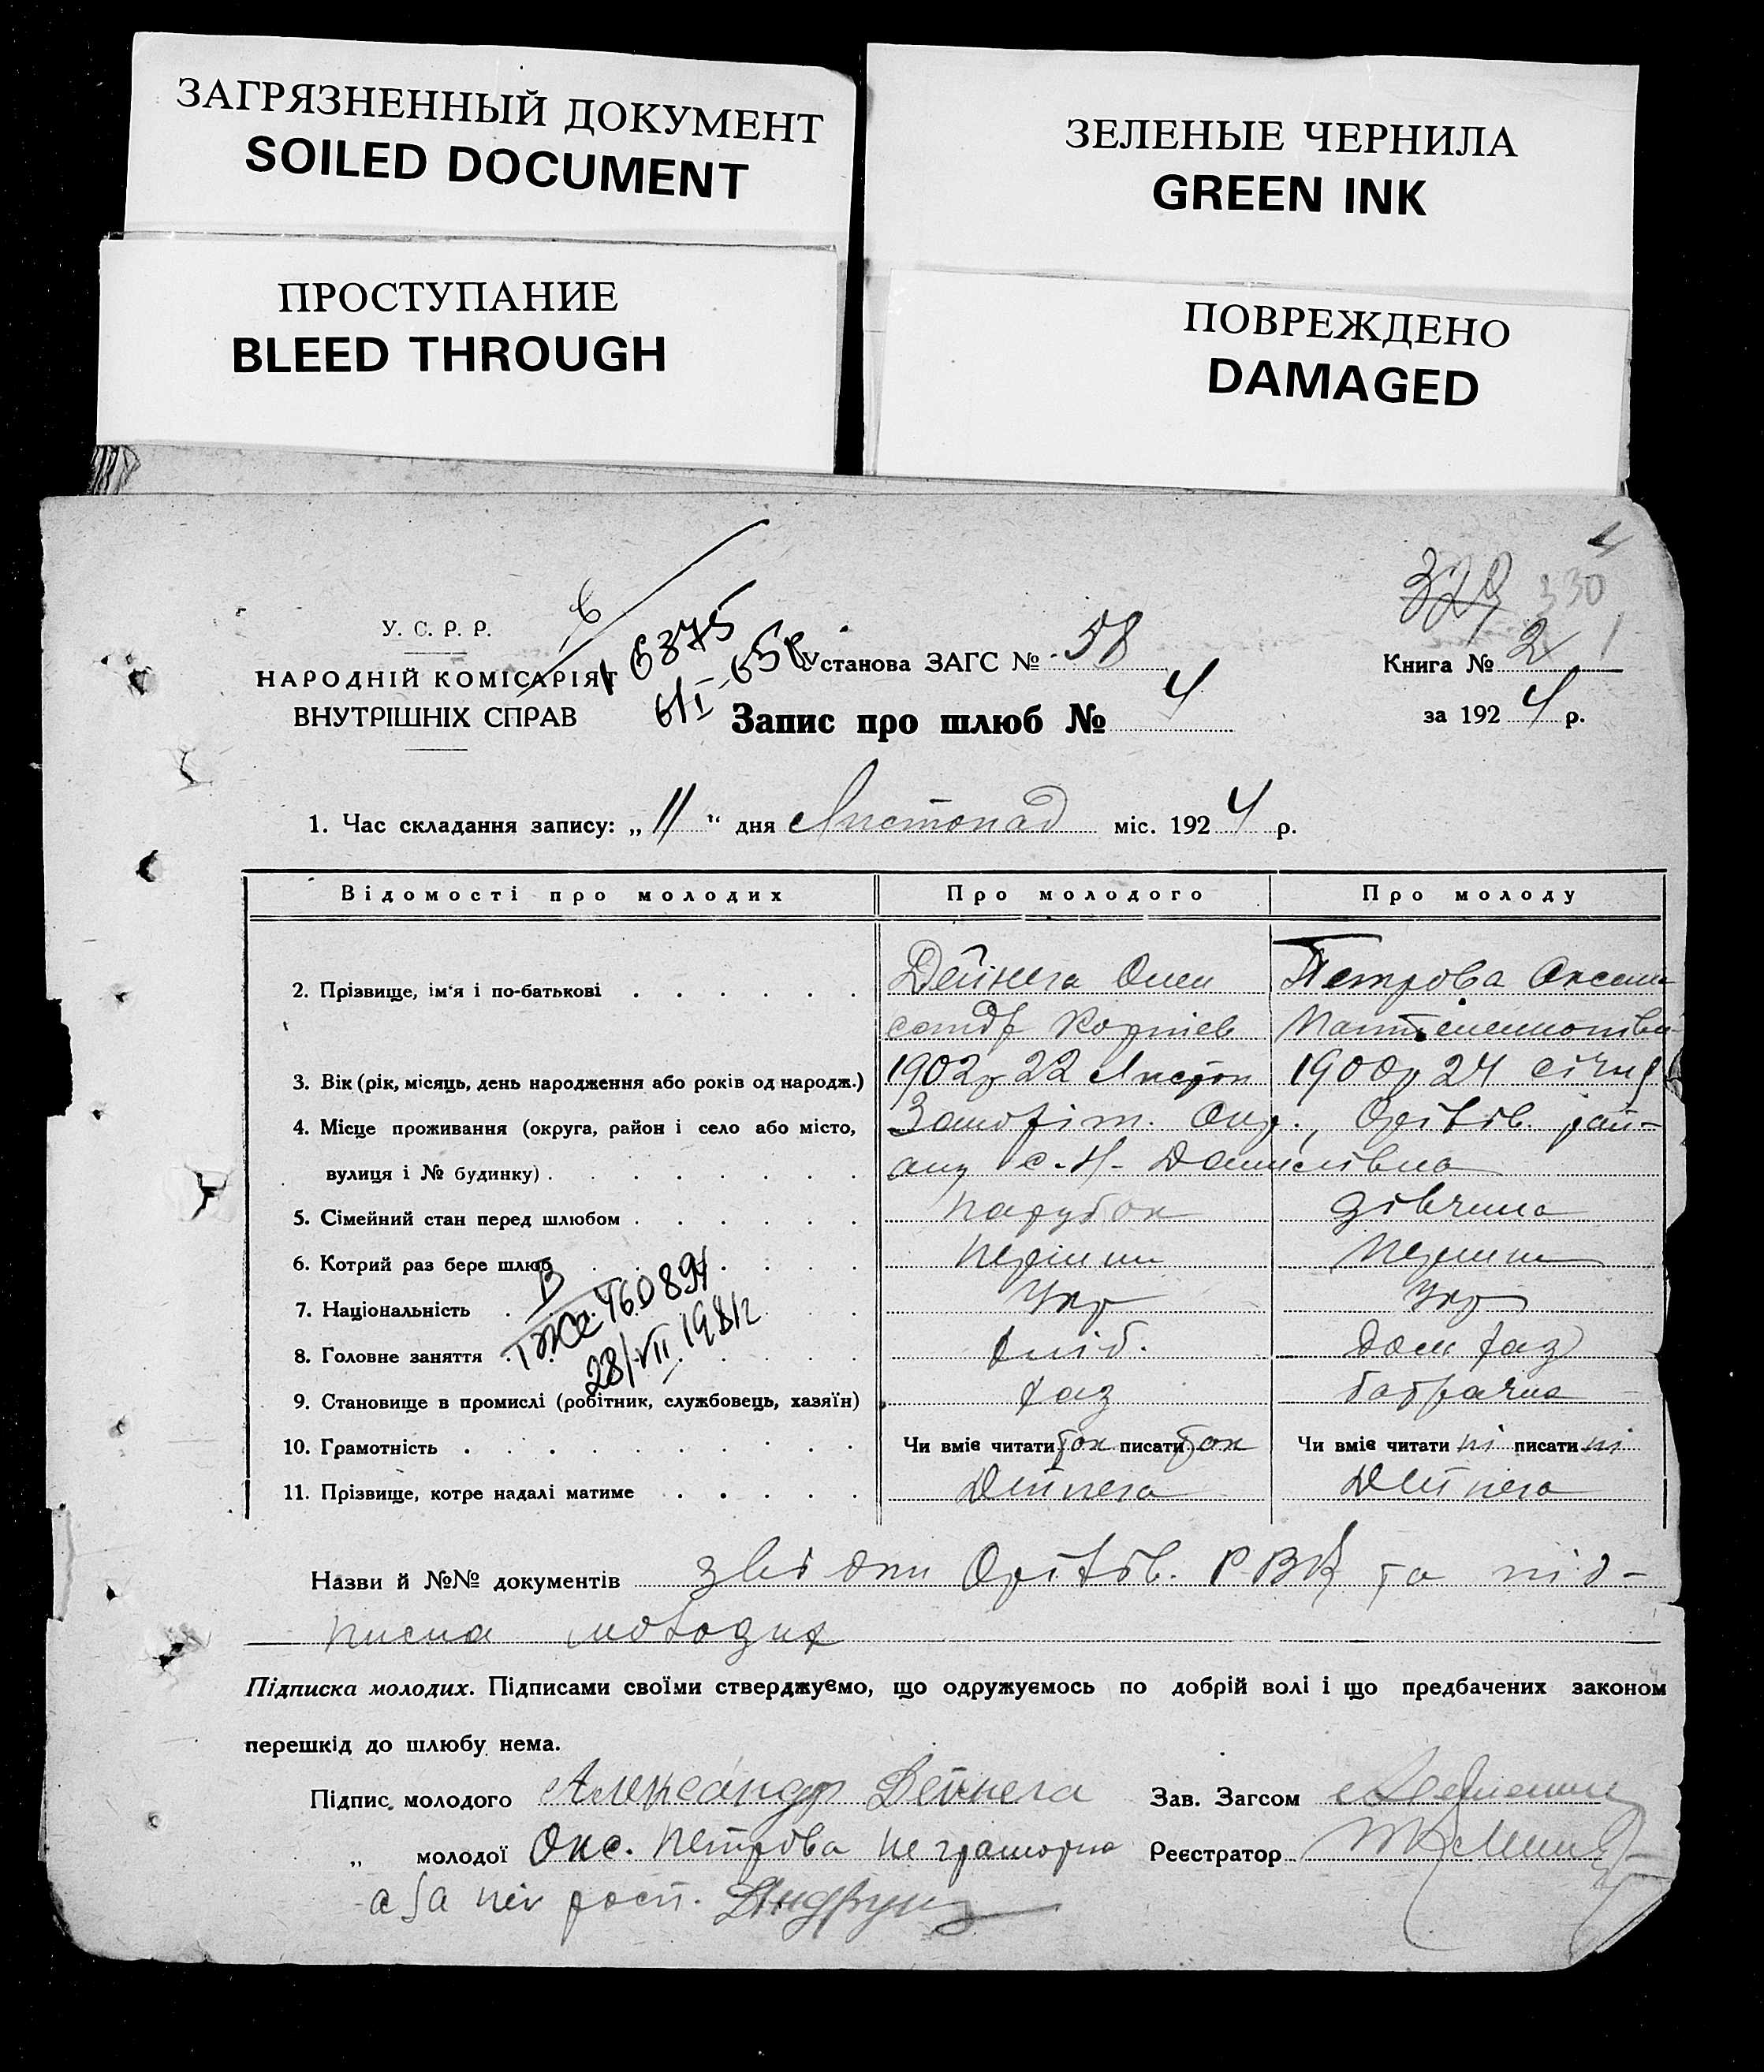 ЗАГРЯЗНЕННЫЙ ДОКУМЕНТ
SOILED DOCUMENT
ЗЕЛЕНЫЕ ЧЕРНИЛА
GREEN INK
ПРОСТУПАНИЕ
BLEED THROUGH
ПОВРЕЖДЕНО
DAMAGED
329 330
У. С. Р. Р.
НАРОДНІЙ КОМІСАРІЯТ
ВНУТРІШНІХ СПРАВ
6375
Установа ЗАГС № 58
Книга № 2
Запис про шлюб № 4
за 1924 р.
1. Час складання запису: „11" дня Листопад міс. 1924 р.
Відомості про молодих Про молодого Про молоду
2. Прізвище, ім'я і по-батькові Дейнега Олександр Петрова Оксана
3. Вік (рік, місяць, день народження або років од народж.) 1902р 22 Листоп 1900р 24 січня
4. Місце проживання (округа, район і село або місто,
вулиця і № будинку)
5. Сімейний стан перед шлюбом парубок дівчина
6. Котрий раз бере шлюб перший перший
7. Національність Укр Укр
8. Головне заняття хліб. дом хаз
9. Становище в промислі (робітник, службовець, хазяїн) хаз
10. Грамотність Чи вміє читати так писати так Чи вміє читати ні писати ні
11. Прізвище, котре надалі матиме Дейнега Дейнега
28/VII 1981
Назви й №№ документів РВК та під-
писка молодих
Підписка молодих. Підписами своїми стверджуємо, що одружуємось по добрій волі і що предбачених законом
перешкід до шлюбу нема.
Підпис молодого Александр Дейнега Зав. Загсом
„ молодої Окс. Петрова не грамотна Реєстратор
а за неї росп.